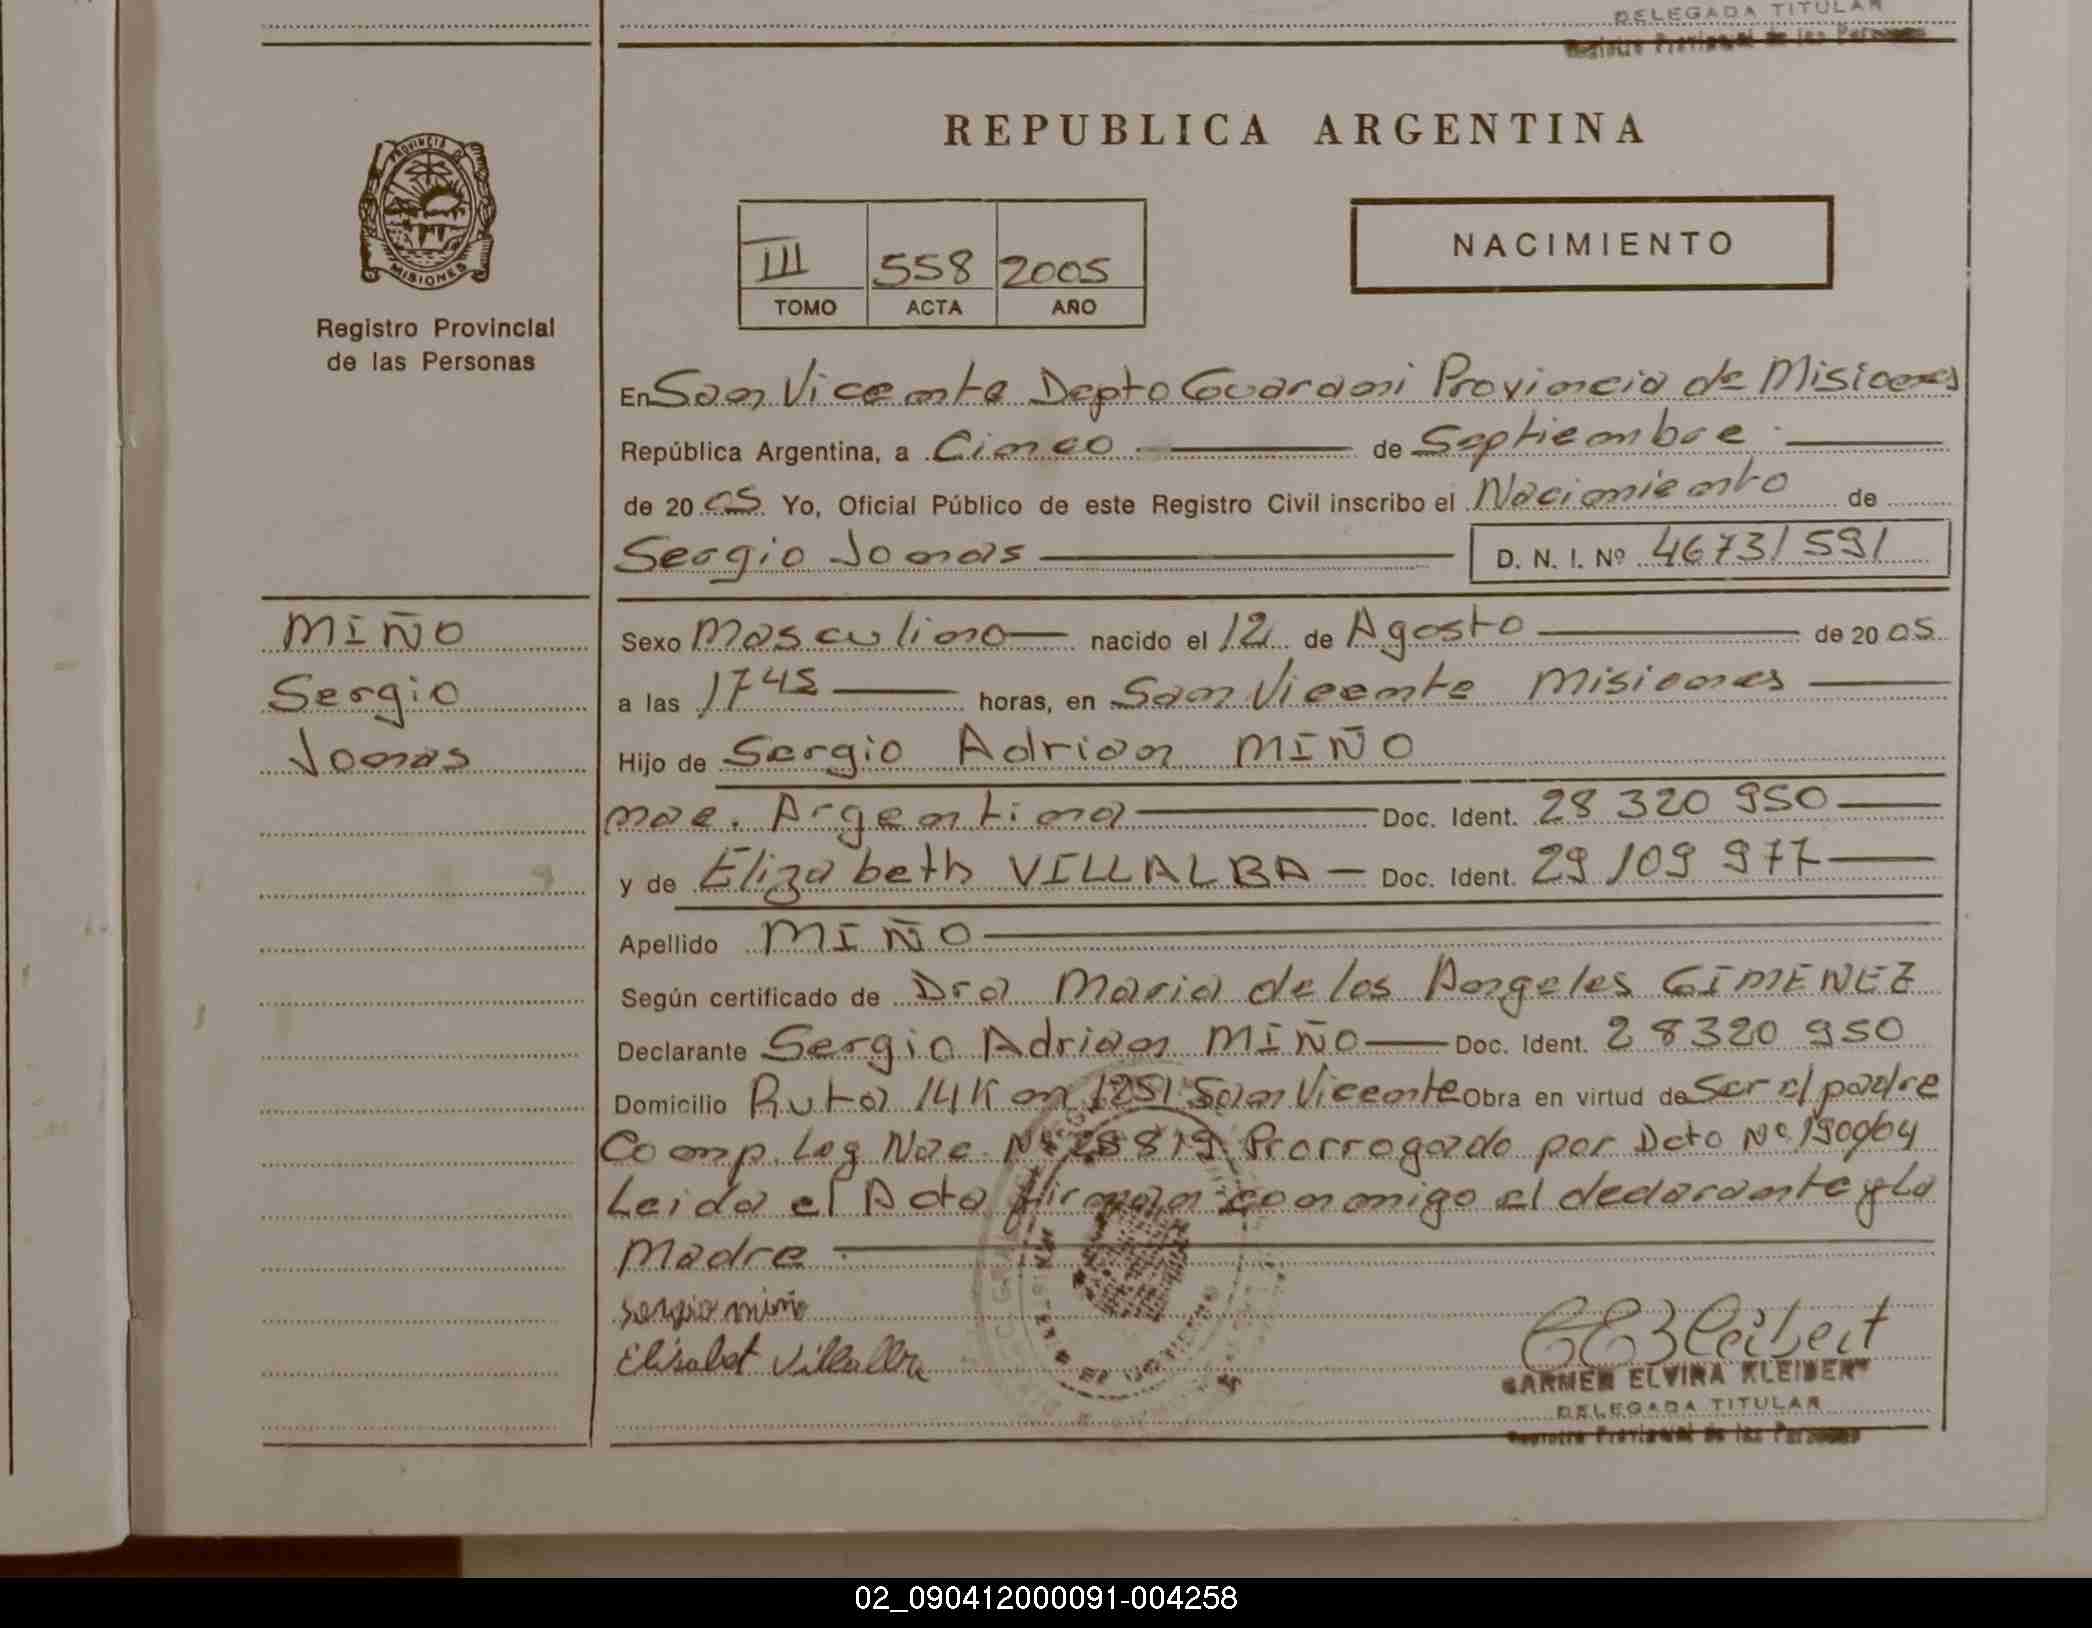 DELEGADA TITULAR
Registro Provincial de las Personas
PROVINCIA DE
MISIONES
Registro Provincial
de las Personas
REPUBLICA ARGENTINA
III 558 2005
TOMO ACTA AÑO
NACIMIENTO
En San Vicente Depto Guarani Provincia de Misiones
República Argentina, a Cinco de Septiembre
de 2005 Yo, Oficial Público de este Registro Civil inscribo el Nacimiento de
Sergio Jonas D. N. I. Nº 46731591
MIÑO
Sergio
Jonas
Sexo Masculino nacido el 12 de Agosto de 2005
a las 1745 horas, en San Vicente Misiones
Hijo de Sergio Adrian MIÑO
nac. Argentina Doc. Ident. 28 320 950
y de Elizabeth VILLALBA Doc. Ident. 29 109 977
Apellido MIÑO
Según certificado de Dra Maria de los Angeles GIMENEZ
Declarante Sergio Adrian MIÑO Doc. Ident. 28320 950
Domicilio Ruta 14 Km 1251 San Vicente Obra en virtud de Ser el padre
Comp. Leg Nac. Nº 28819 Prorrogado por Dcto Nº 190964
Leida el Acta firman conmigo el declarante y la
Madre
Sergio miño
Elisabet Villalba
CEKleibert
CARMEN ELVIRA KLEIBERT
DELEGADA TITULAR
Registro Provincial de las Personas
02_090412000091-004258